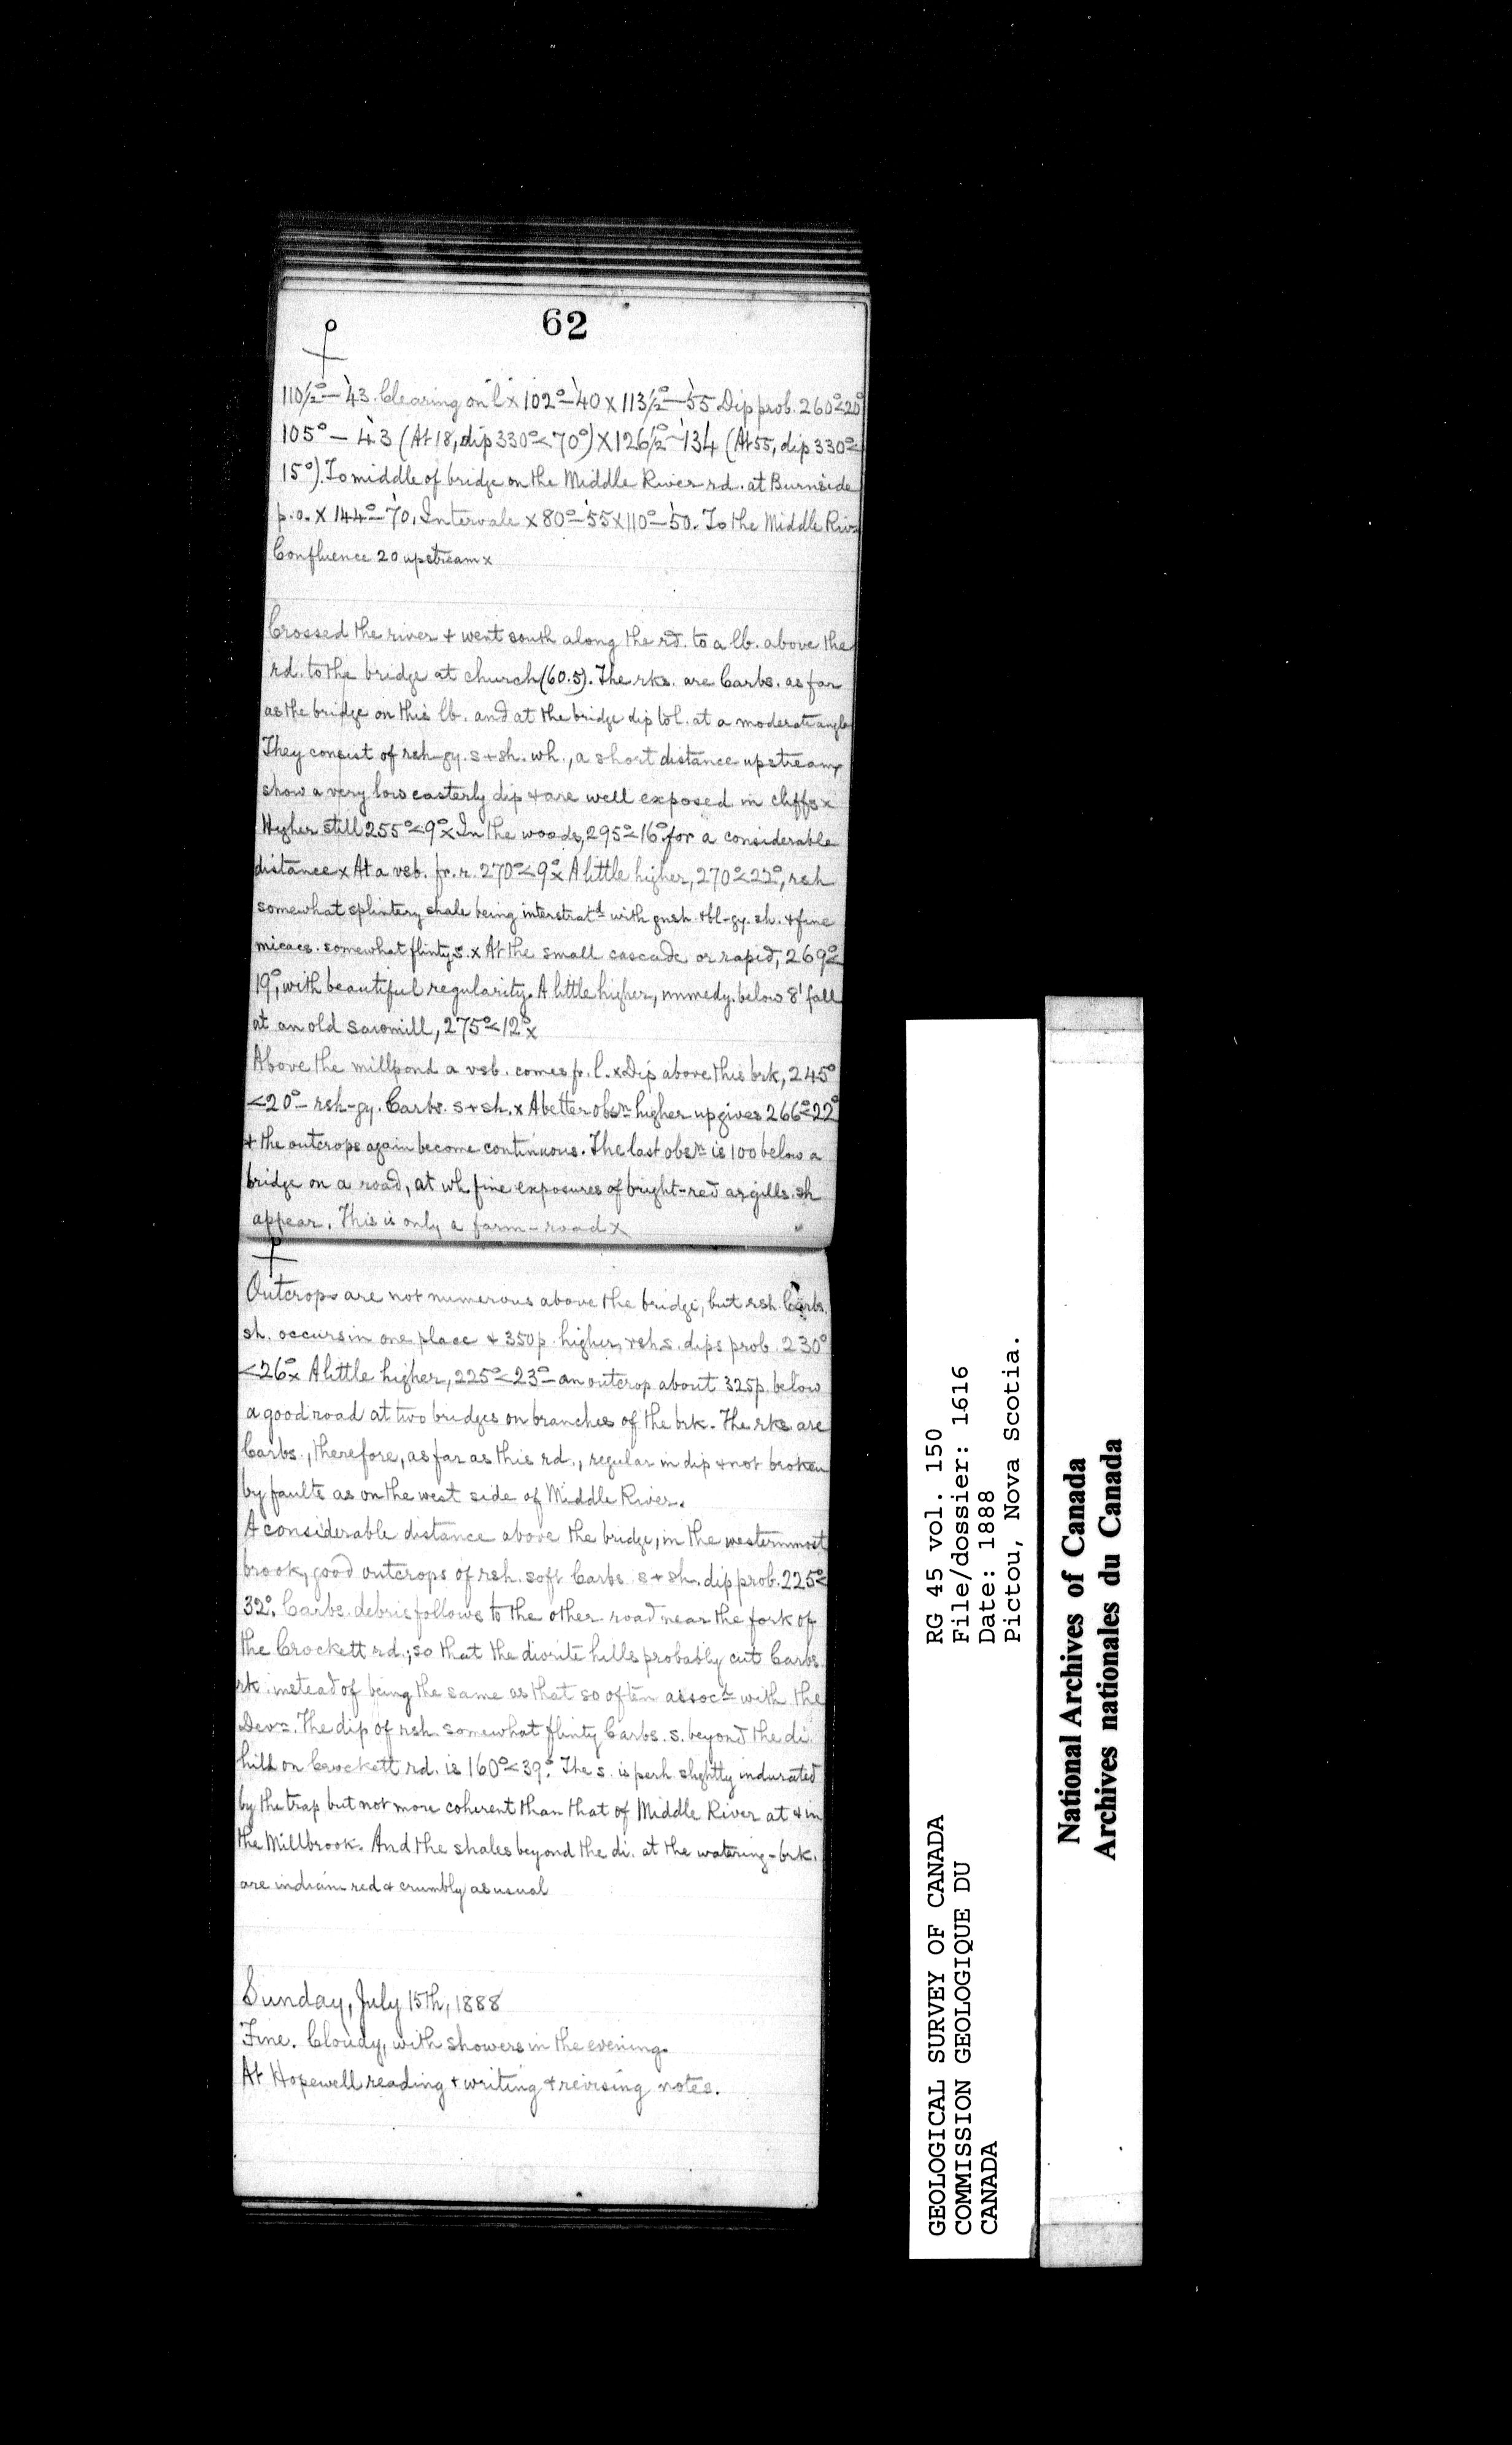 62
110½° – 43. Clearing on l x 102° – 40 x 113½° – 55 Dip prob. 260°<20°
105° – 43 (At 18, dip 330°<70°) x 126½° – 134 (At 55, dip 330°<
15°). To middle of bridge on the Middle River rd. at Burnside
p.o. x 144° – 70. Intervale x 80° – 55 x 110° – 50. To the Middle Riv.
Confluence 20 upstream x
Crossed the river + went south along the rd. to a lb. above the
rd. to the bridge at church (60.5). The rks. are Carbs. as far
as the bridge on this lb. and at the bridge dip to l. at a moderate angle
They consist of rsh-gy. s + sh. wh., a short distance upstream,
show a very low easterly dip + are well exposed in cliffs x
Higher still 255°<9° x In the woods, 295°<16° for a considerable
distance x At a vsb. fr. r. 270°<9° x A little higher, 270°<22°, rsh
somewhat splintery shale being interstratd. with gnsh. + bl-gy. sh. + fine
micacs. somewhat flinty s. x At the small cascade or rapid, 269°<
19°, with beautiful regularity. A little higher, immedy. below 8' fall
at an old sawmill, 275°<12° x
Above the millpond a vsb. comes fr. l. x Dip above this brk, 245°
<20° – rsh-gy. Carbs. s + sh. x A better obsn. higher up gives 266°<22°
+ the outcrops again become continuous. The last obsn. is 100 below a
bridge on a road, at wh fine exposures of bright-red argills. sh
appear. This is only a farm-road x
Outcrops are not numerous above the bridge, but rsh. Carbs.
sh. occurs in one place + 350 p. higher, rsh s. dips prob. 230°
<26° x A little higher, 225°<23° – an outcrop about 325 p. below
a good road at two bridges on branches of the brk. The rks are
Carbs., therefore, as far as this rd., regular in dip + not broken
by faults as on the west side of Middle River.
A considerable distance above the bridge, in the westernmost
brook, good outcrops of rsh. soft Carbs. s + sh. dip prob. 225°<
32°. Carbs. debris follows to the other road near the fork of
the Crockett rd.; so that the diorite hills probably cut Carbs.
rk. instead of being the same as that so often assocd. with the
Devn. The dip of rsh. somewhat flinty Carbs. s. beyond the di.
hill on Crockett rd. is 160°<39°. The s. is perh. slightly indurated
by the trap but not more coherent than that of Middle River at + in
the Millbrook. And the shales beyond the di. at the watering-brk.
are indian-red + crumbly as usual
Sunday, July 15th, 1888
Fine. Cloudy, with showers in the evening.
At Hopewell reading + writing + revising notes.
GEOLOGICAL SURVEY OF CANADA
COMMISSION GEOLOGIQUE DU
CANADA
RG 45 vol. 150
File/dossier: 1616
Date: 1888
Pictou, Nova Scotia.
National Archives of Canada
Archives nationales du Canada